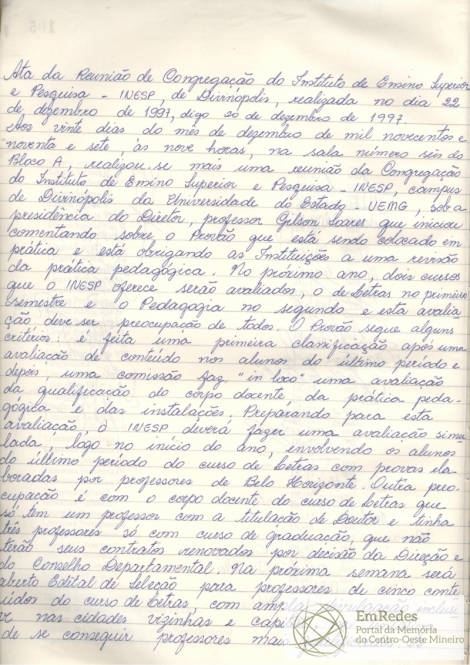 Ata da Reunião de Congregação do Instituto de Ensino Superior
e Pesquisa - INESP, de Divinópolis, realizada no dia 22
de dezembro de 1997, digo 20 de dezembro de 1997.
Aos vinte dias do mês de dezembro de mil novecentos e
noventa e sete, às nove horas, na sala número seis do
Bloco A, realizou-se mais uma reunião da Congregação
do Instituto de Ensino Superior e Pesquisa - INESP, campus
de Divinópolis da Universidade do Estado - UEMG, sob a
presidência do Diretor, professor Gilson Soares que iniciou
comentando sobre o Provão que está sendo colocado em
prática e está obrigando as Instituições a uma revisão
da prática pedagógica. No próximo ano, dois cursos
que o INESP oferece serão avaliados, o de Letras no primeiro
semestre e o Pedagogia no segundo e esta avalia
ção deve ser preocupação de todos. O Provão segue alguns
critérios: é feita uma primeira classificação após uma
avaliação de conteúdo nos alunos do último período e
depois uma comissão faz "in loco" uma avaliação
da qualificação do corpo docente, da prática peda-
gógica e das instalações. Preparando para esta
avaliação, o INESP deverá fazer uma avaliação simu
lada, logo no início do ano, envolvendo os alunos
do último período do curso de Letras com provas ela
boradas por professores de Belo Horizonte. Outra preo-
cupação é com o corpo docente do curso de Letras que
só tem um professor com a titulação de Doutor e tinha
três professores só com curso de graduação, que não
terão seus contratos renovados por decisão da Direção e
do Conselho Departamental. Na próxima semana será
aberto Edital de Seleção para professores de cinco conte
údos do curso de Letras, com divulgação inclusi
ve nas cidades vizinhas e
de se conseguir professores mais
EmRedes
Portal da Memória
do Centro-Oeste Mineiro